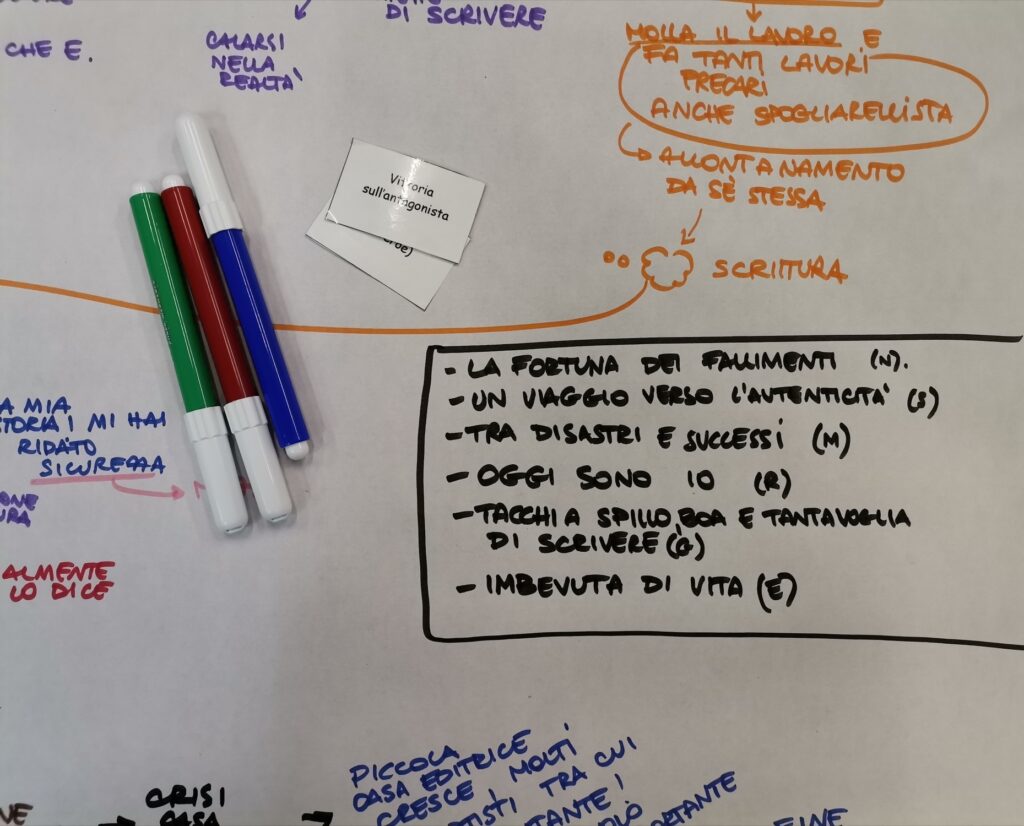 DI SCRIVERE
CHE E.
CALARSI
NELLA
REALTA'
MOLLA IL LAVORO E
FA TANTI LAVORI
PRECARI
ANCHE SPOGLIARELLISTA
ALLONTANAMENTO
DA SÈ STESSA
SCRITTURA
Vittoria
sull'antagonista
roe)
- LA FORTUNA DEI FALLIMENTI (N).
- UN VIAGGIO VERSO L'AUTENTICITA' (S)
- TRA DISASTRI E SUCCESSI (M)
- OGGI SONO IO (R)
- TACCHI A SPILLO, BOA E TANTA VOGLIA
DI SCRIVERE (G)
- IMBEVUTA DI VITA (E)
A MIA
STORIA, MI HAI
RIDATO
SICUREZZA
ONE
URA
ALMENTE
LO DICE
PICCOLA
CASA EDITRICE
CRESCE, MOLTI
TISTI TRA CUI
TANTE!
CRISI
CASA
NE
ORTANTE
FINE